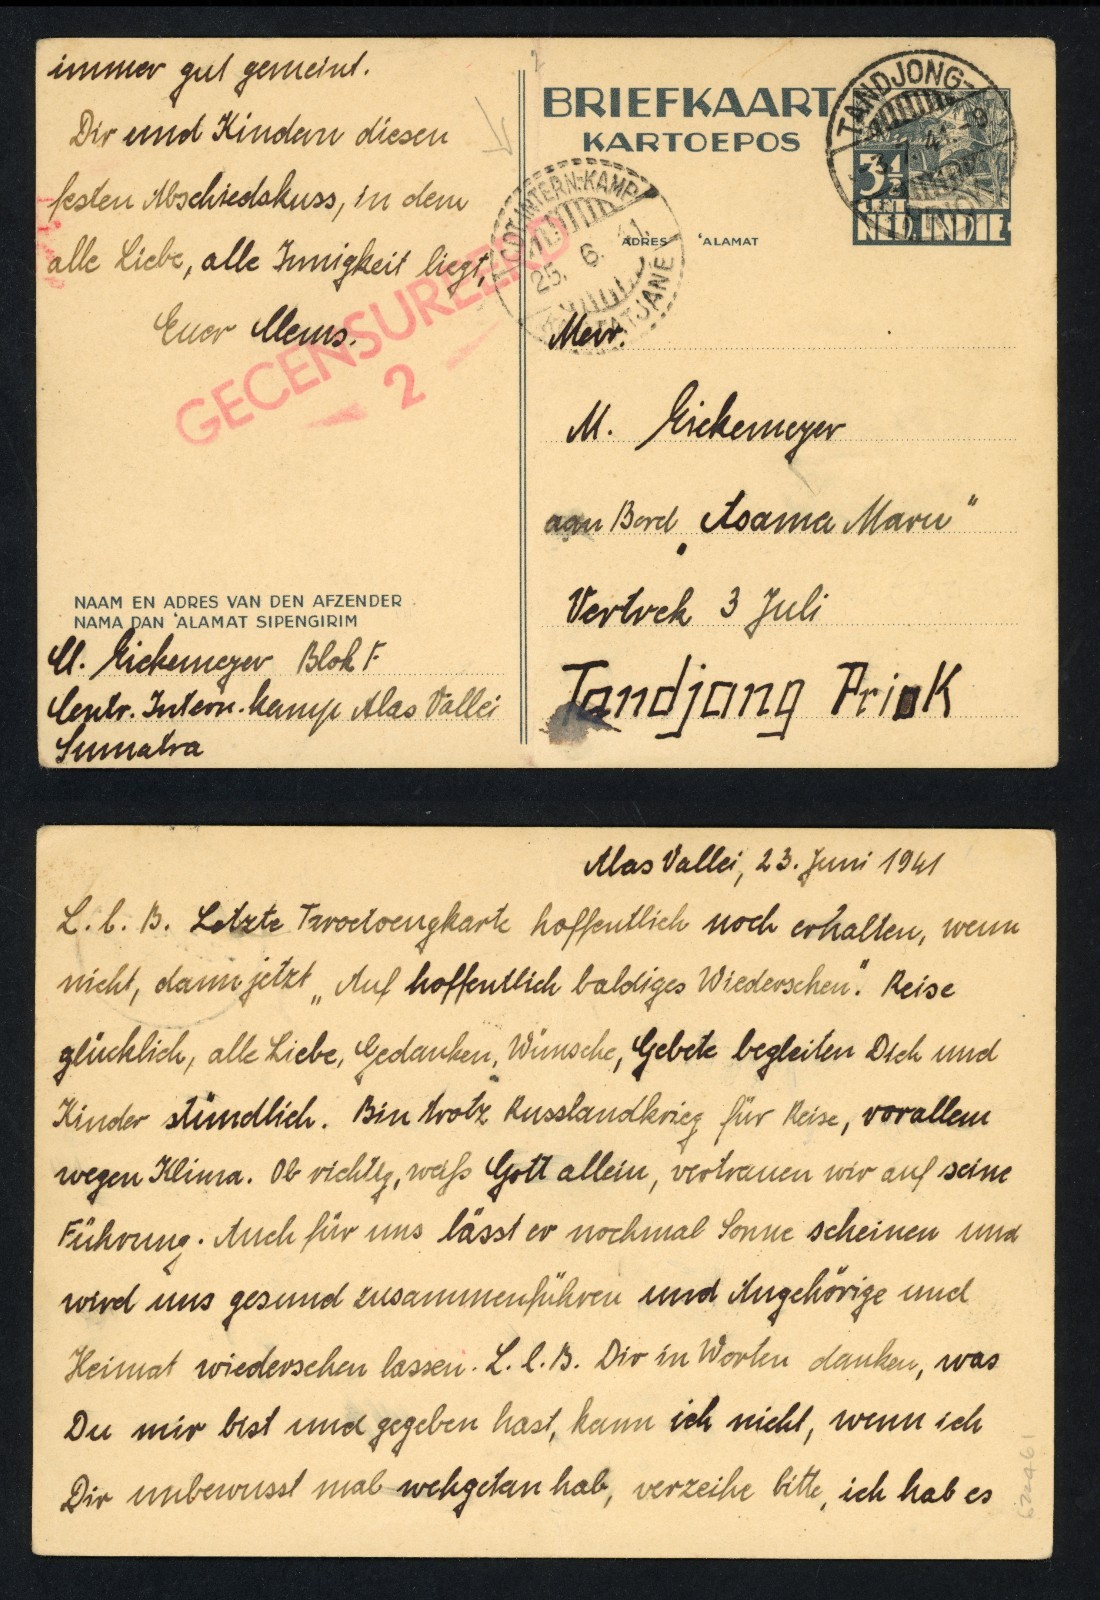 immer gut gemeint.
Dir und Kindern diesen
festen Abschiedskuss, in dem
alle Liebe, alle Innigkeit liegt,
Euer Mems.
GECENSUREERD
2
NAAM EN ADRES VAN DEN AFZENDER
NAMA DAN 'ALAMAT SIPENGIRIM
M. Eickemeyer Blok F.
Centr. Intern. Kamp Alas Vallei
Sumatra
2
BRIEFKAART
KARTOEPOS
TANDJONG-
41.-9
3½
CENT
NED.INDIE
INTERN-KAMP
25. 6. 41.
TATJANE
ADRES 'ALAMAT
Mevr.
M. Eickemeyer
aan Bord „Asama Maru"
Vertrek 3 Juli
Tandjong Priok
Alas Vallei, 23. Juni 1941
L. l. B. Letzte Troetoengkarte hoffentlich noch erhalten, wenn
nicht, dann jetzt „Auf hoffentlich baldiges Wiedersehen". Reise
glücklich, alle Liebe, Gedanken, Wünsche, Gebete begleiten Dich und
Kinder stündlich. Bin trotz Russlandkrieg für Reise, vorallem
wegen Klima. Ob richtig, weiß Gott allein, vertrauen wir auf seine
Führung. Auch für uns lässt er nochmal Sonne scheinen und
wird uns gesund zusammenführen und Angehörige und
Heimat wiedersehen lassen. L. l. B. Dir in Worten danken, was
Du mir bist und gegeben hast, kann ich nicht, wenn ich
Dir unbewusst mal wehgetan hab, verzeihe bitte, ich hab es